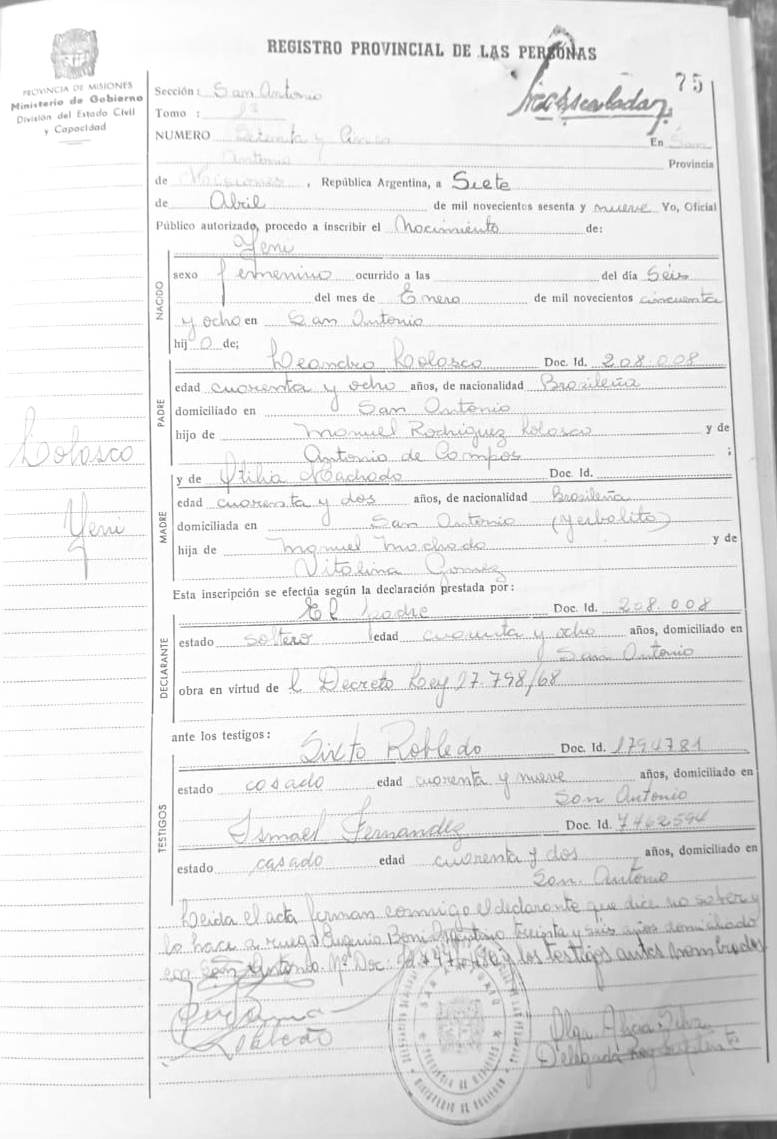 REGISTRO PROVINCIAL DE LAS PERSONAS
75
PROVINCIA DE MISIONES
Ministerio de Gobierno
División del Estado Civil
y Capacidad
Sección: San Antonio
Tomo :
NUMERO Setenta y Cinco En San
Antonio Provincia
de Misiones, República Argentina, a Siete
de Abril de mil novecientos sesenta y nueve Yo, Oficial
Público autorizado, procedo a inscribir el Nacimiento de:
Yeni
NACIDO
sexo femenino ocurrido a las del día Seis
del mes de Enero de mil novecientos cincuenta
y ocho en San Antonio
hija de;
PADRE
Leandro Lolasco Doc. Id. 208.008
edad cuarenta y ocho años, de nacionalidad Brasileña
domiciliado en San Antonio
hijo de Manuel Rodriguez Lolasco y de
Antonio de Campos ;
Lolasco
Yeni
MADRE
y de Otilia Machado Doc. Id.
edad cuarenta y dos años, de nacionalidad Brasileña
domiciliada en San Antonio (Yerbalito)
hija de Manuel Machado y de
Vitalina Gomez
Esta inscripción se efectúa según la declaración prestada por:
DECLARANTE
El padre Doc. Id. 208.008
estado soltero edad cuarenta y ocho años, domiciliado en
San Antonio
obra en virtud de l Decreto Ley 17.798/68
ante los testigos:
TESTIGOS
Sixto Robledo Doc. Id. 1794781
estado casado edad cuarenta y nueve años, domiciliado en
San Antonio
Ismael Fernandez Doc. Id. 7462594
estado casado edad cuarenta y dos años, domiciliado en
San Antonio
Leida el acta firman conmigo el declarante que dice no saber y
lo hace a ruego Eugenio Boni Argentino treinta y seis años domiciliado
en San Antonio. Nº Doc. y los testigos antes nombrados
Robledo
Olga Alicia
Delegada